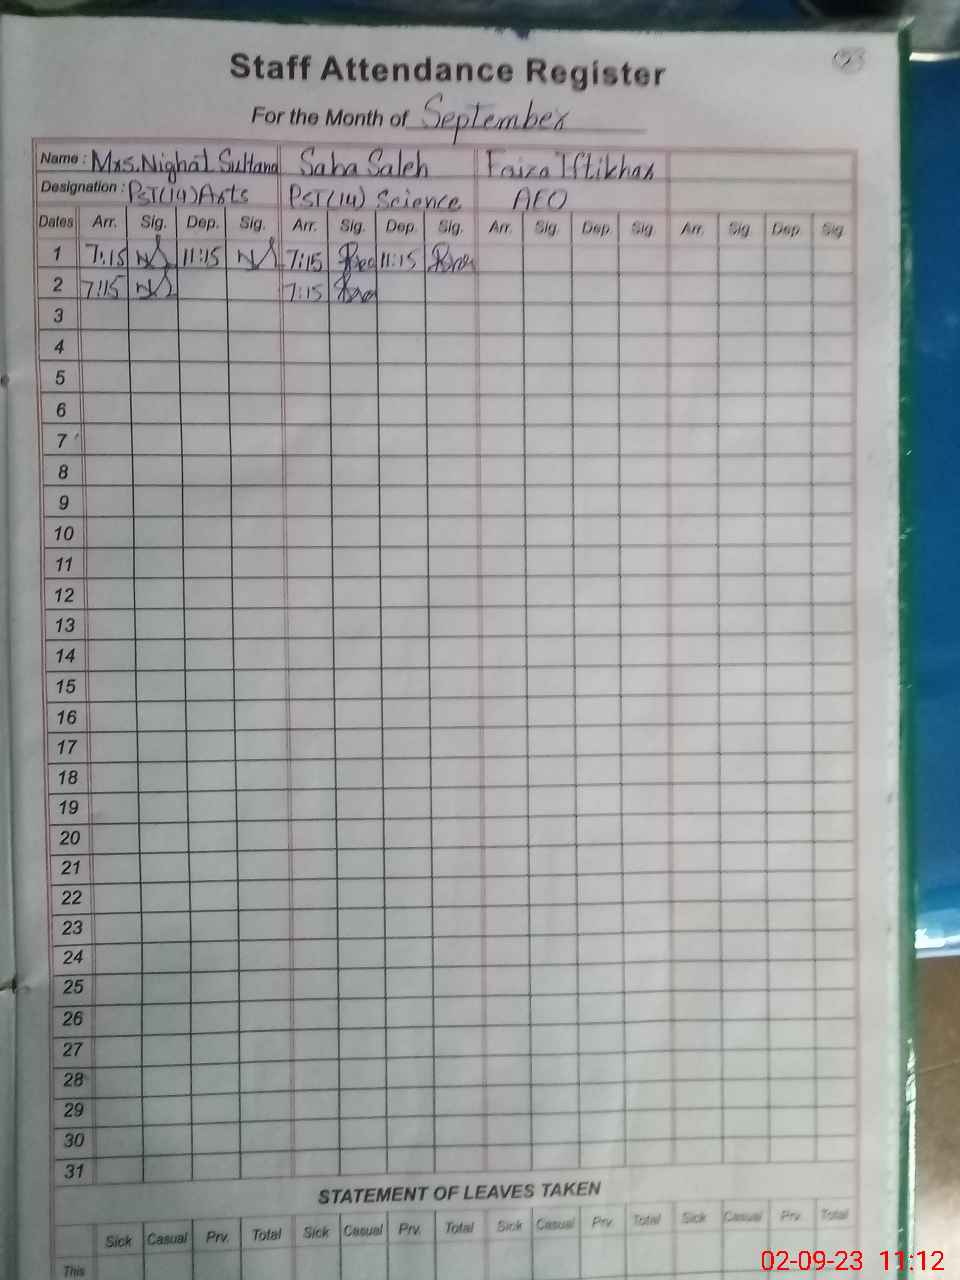 23
Staff Attendance Register
For the Month of September
Name : Mrs. Nighat Sultana Saba Saleh Faiza Iftikhar
Designation : PST(14) Arts PST(14) Science AEO
Dates Arr. Sig. Dep. Sig. Arr. Sig. Dep. Sig. Arr. Sig. Dep. Sig. Arr. Sig. Dep. Sig.
1 7:15 NS 11:15 NS 7:15 11:15
2 7:15 NS 7:15
3
4
5
6
7
8
9
10
11
12
13
14
15
16
17
18
19
20
21
22
23
24
25
26
27
28
29
30
31
STATEMENT OF LEAVES TAKEN
Sick Casual Prv. Total Sick Casual Prv. Total Sick Casual Prv. Total Sick Casual Prv. Total
This
02-09-23 11:12